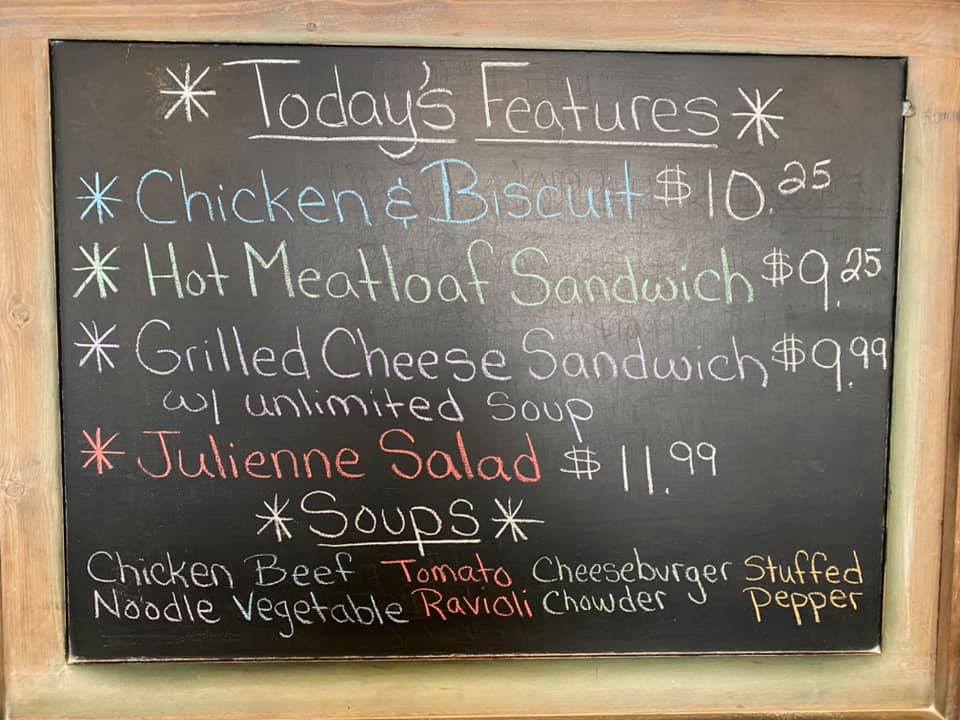 * Today's Features *
* Chicken & Biscuit $10.25
* Hot Meatloaf Sandwich $9.25
* Grilled Cheese Sandwich $9.99
w/ unlimited soup
* Julienne Salad $11.99
* Soups *
Chicken Beef Tomato Cheeseburger Stuffed
Noodle Vegetable Ravioli Chowder Pepper